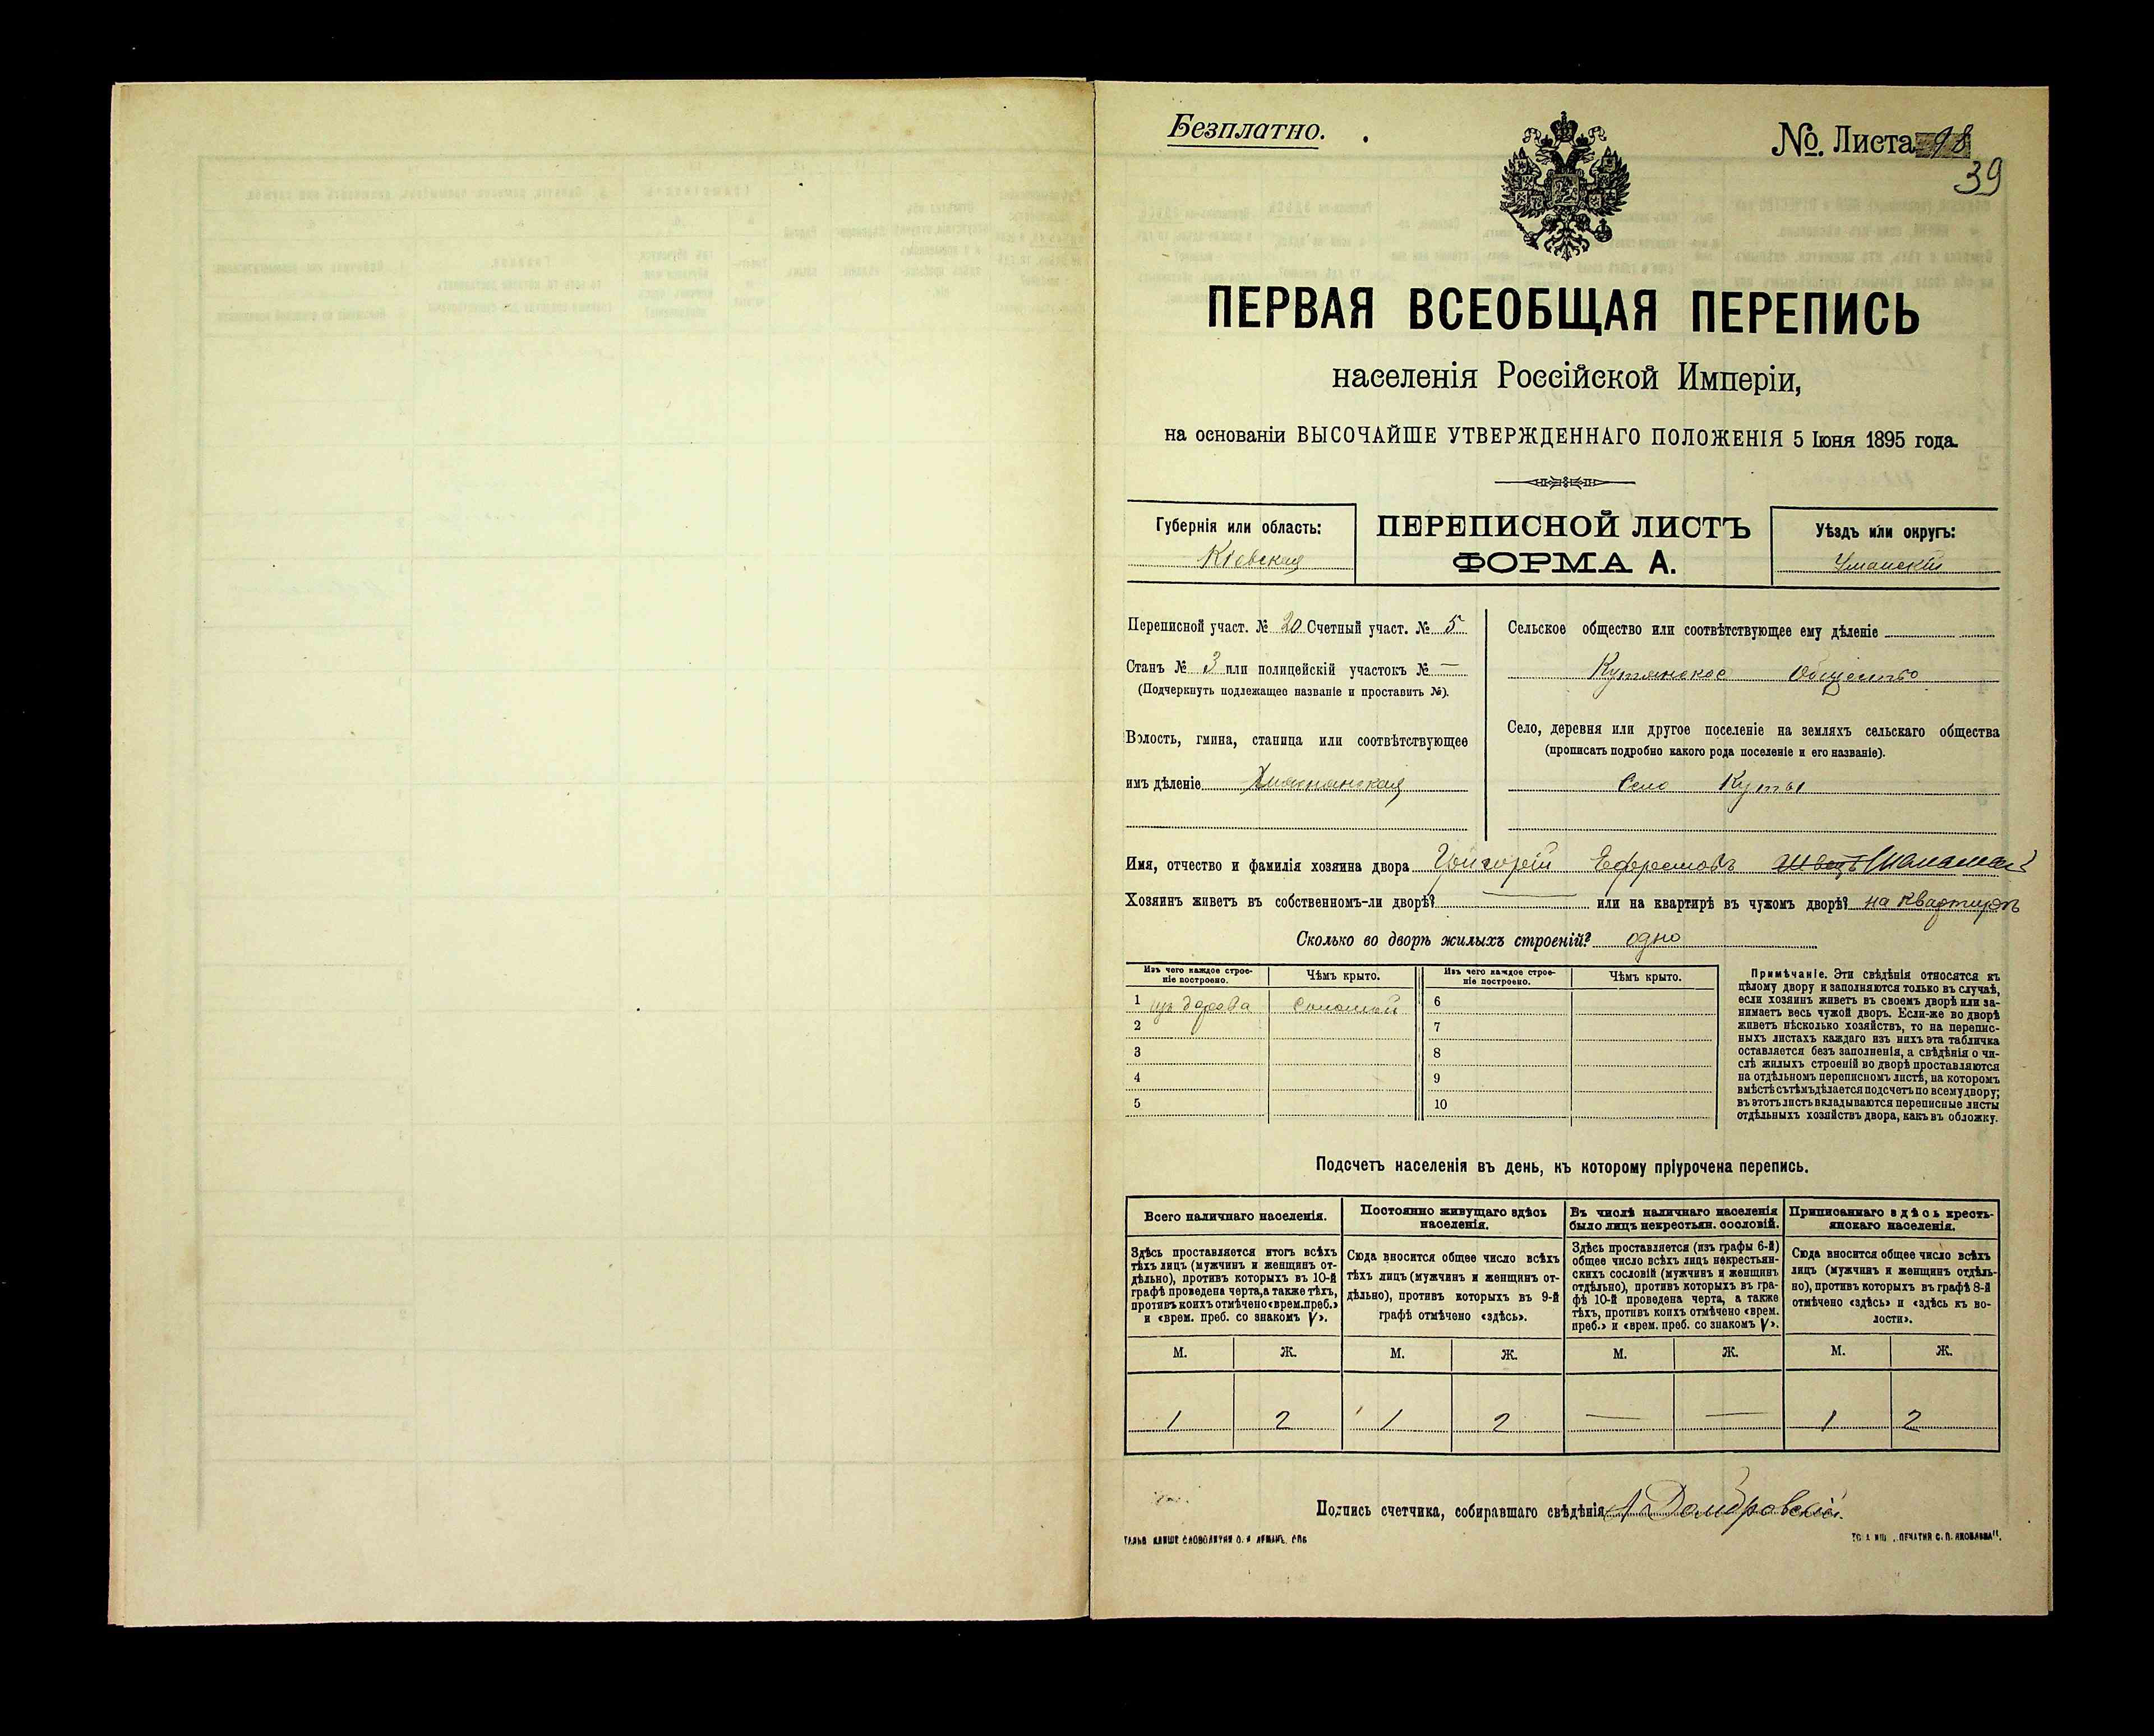 Безплатно.
№. Листа 98
39
ПЕРВАЯ ВСЕОБЩАЯ ПЕРЕПИСЬ
населенія Россійской Имперіи,
на основаніи ВЫСОЧАЙШЕ УТВЕРЖДЕННАГО ПОЛОЖЕНІЯ 5 Іюня 1895 года.
Губернія или область:
Кіевская
ПЕРЕПИСНОЙ ЛИСТЪ
ФОРМА А.
Уѣздъ или округъ:
Уманскій
Переписной участ. № 20 Счетный участ. № 5
Станъ № 3 или полицейскій участокъ № —
(Подчеркнуть подлежащее названіе и проставить №).
Волость, гмина, станица или соотвѣтствующее
имъ дѣленіе
Сельское общество или соотвѣтствующее ему дѣленіе
Кутянское Общество
Село, деревня или другое поселеніе на земляхъ сельскаго общества
(прописать подробно какого рода поселеніе и его названіе).
Село Куты
Имя, отчество и фамилія хозяина двора Григорій Ефремовъ
Хозяинъ живетъ въ собственномъ-ли дворѣ? — или на квартирѣ въ чужомъ дворѣ? на квартирѣ
Сколько во дворѣ жилыхъ строеній? одно
Изъ чего каждое строе-
ніе построено.
Чѣмъ крыто.
Изъ чего каждое строе-
ніе построено.
Чѣмъ крыто.
1 изъ дерева соломой 6
2 7
3 8
4 9
5 10
Примѣчаніе. Эти свѣдѣнія относятся къ
цѣлому двору и заполняются только въ случаѣ,
если хозяинъ живетъ въ своемъ дворѣ или за-
нимаетъ весь чужой дворъ. Если-же во дворѣ
живетъ нѣсколько хозяйствъ, то на перепис-
ныхъ листахъ каждаго изъ нихъ эта табличка
оставляется безъ заполненія, а свѣдѣнія о чи-
слѣ жилыхъ строеній во дворѣ проставляются
на отдѣльномъ переписномъ листѣ, на которомъ
вмѣстѣ съ тѣмъ дѣлается подсчетъ по всему двору;
въ этотъ листъ вкладываются переписные листы
отдѣльныхъ хозяйствъ двора, какъ въ обложку.
Подсчетъ населенія въ день, къ которому пріурочена перепись.
Всего наличнаго населенія.
Здѣсь проставляется итогъ всѣхъ
тѣхъ лицъ (мужчинъ и женщинъ от-
дѣльно), противъ которыхъ въ 10-й
графѣ проведена черта, а также тѣхъ,
противъ коихъ отмѣчено «врем. преб.»
и «врем. преб. со знакомъ V».
Постоянно живущаго здѣсь
населенія.
Сюда вносится общее число всѣхъ
тѣхъ лицъ (мужчинъ и женщинъ от-
дѣльно), противъ которыхъ въ 9-й
графѣ отмѣчено «здѣсь».
Въ числѣ наличнаго населенія
было лицъ некрестьян. сословій.
Здѣсь проставляется (изъ графы 6-й)
общее число всѣхъ лицъ некрестьян-
скихъ сословій (мужчинъ и женщинъ
отдѣльно), противъ которыхъ въ гра-
фѣ 10-й проведена черта, а также
тѣхъ, противъ коихъ отмѣчено «врем.
преб.» и «врем. преб. со знакомъ V».
Приписаннаго здѣсь кресть-
янскаго населенія.
Сюда вносится общее число всѣхъ
лицъ (мужчинъ и женщинъ отдѣль-
но), противъ которыхъ въ графѣ 8-й
отмѣчено «здѣсь» и «здѣсь къ во-
лости».
М. Ж. М. Ж. М. Ж. М. Ж.
1 2 1 2 — — 1 2
Подпись счетчика, собиравшаго свѣдѣнія А Домбровскій.